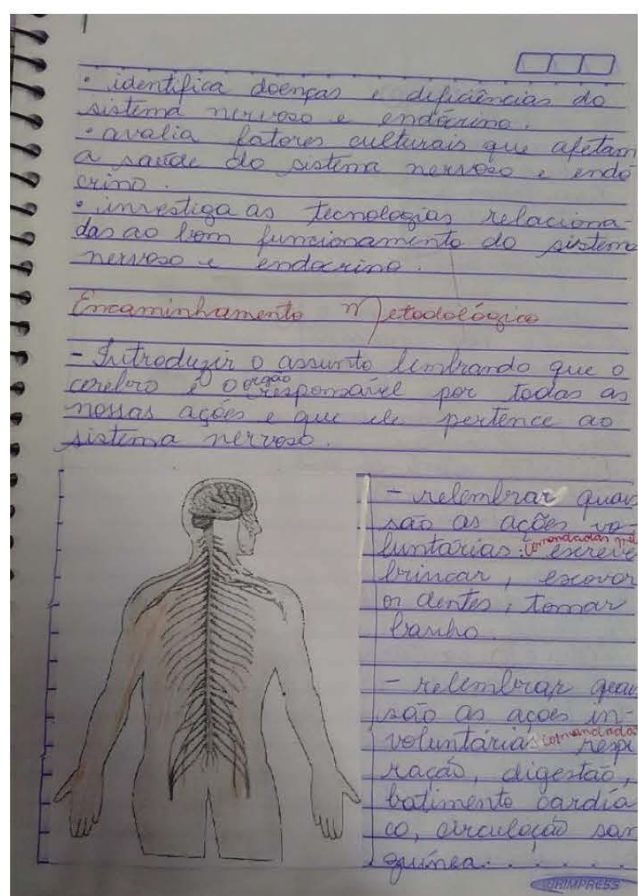 • identifica doenças e deficiências do
sistema nervoso e endócrino.
• avalia fatores culturais que afetam
a saúde do sistema nervoso e endó
crino.
• investiga as tecnologias relaciona-
das ao bom funcionamento do sistema
nervoso e endócrino.
Encaminhamento Metodológico
- Introduzir o assunto lembrando que o
cérebro é o orgão responsável por todas as
nossas ações e que ele pertence ao
sistema nervoso.
- relembrar quais
são as ações vo-
luntárias: comandadas escreve
brincar, escovar
os dentes, tomar
banho.
- relembrar quais
são as ações in-
voluntárias comandadas respi
ração, digestão,
batimento cardía
co, circulação san
guínea. . . . . .
UNIMPRESS